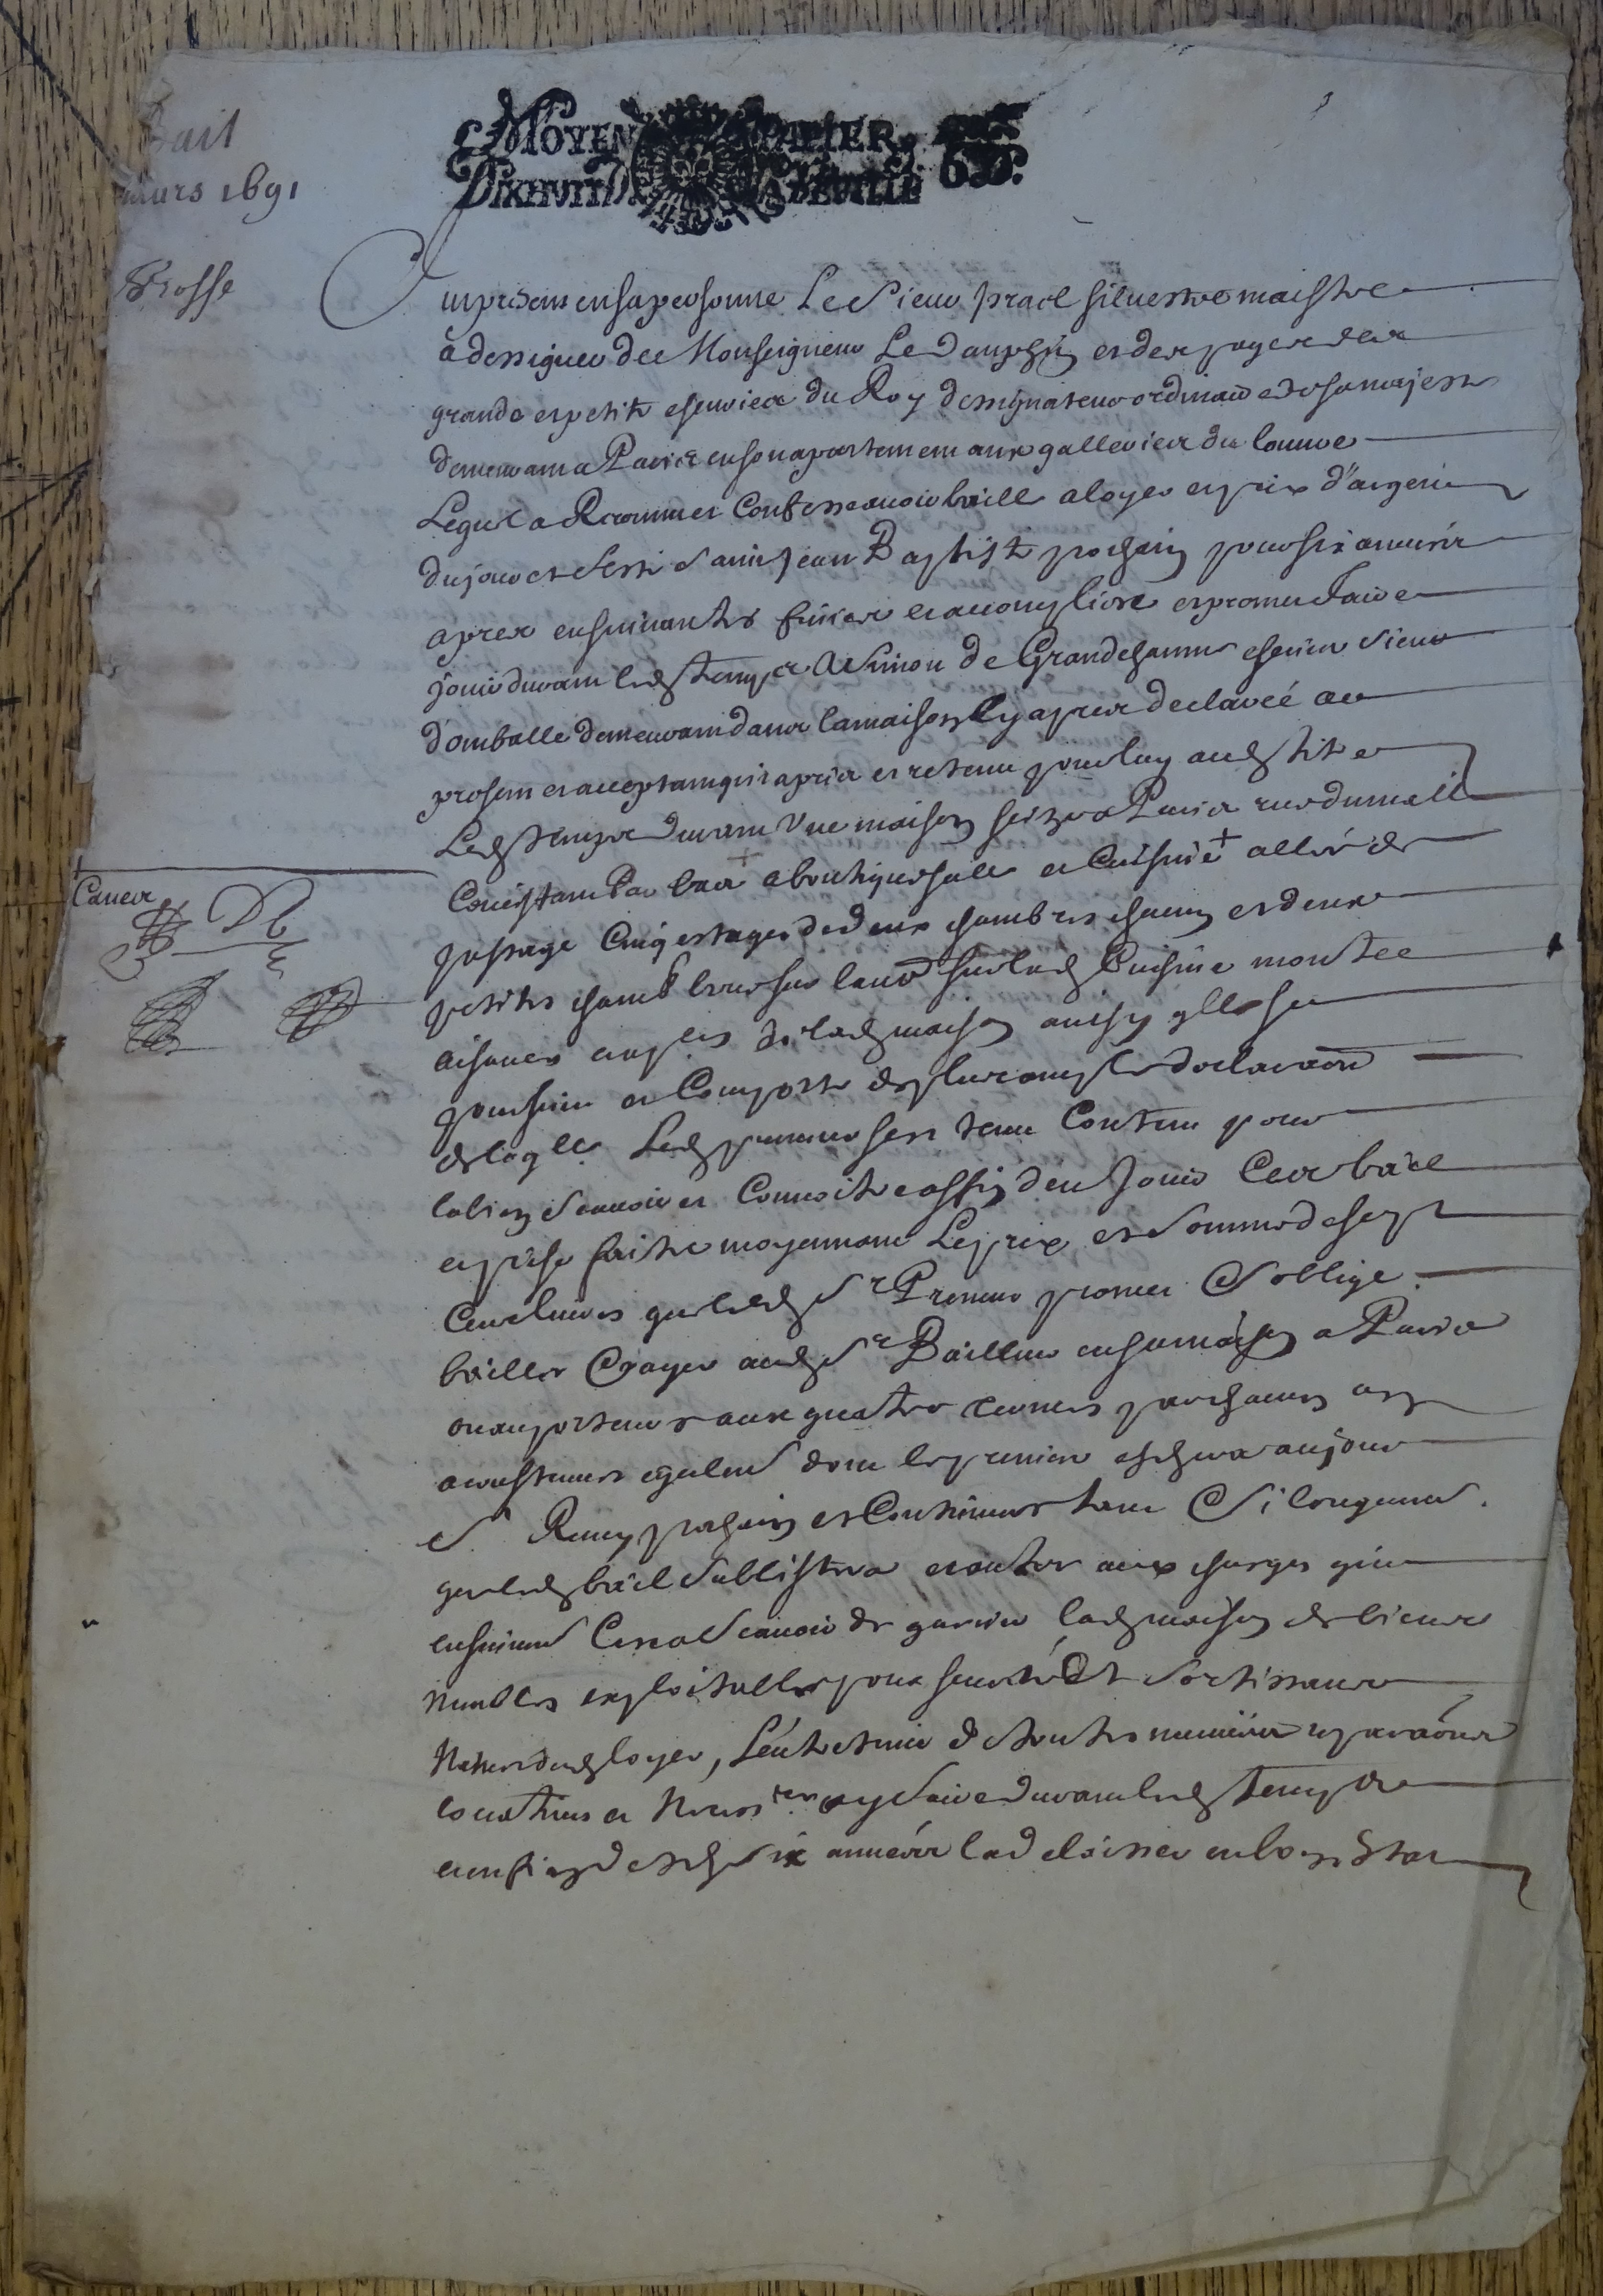 Bail
mars 1691
Grosse
MOYEN PAPIER
DIXHUIT D. LA FEUILLE
Fut present en sa personne Le Sieur Israel silvestre maistre
a dessigner de Monseigneur Le Dauphin et des pages des
grande et petite escuries du Roy dessignateur ordinaire de sa majeste
demeurant a Paris en son apartement aux galleries du louvre
Lequel a Reconnu et Confesse avoir baille a loyer et prix d'argent
du jour et feste Saint Jean Baptiste prochain pour six années
apres ensuivantes finies et accomplies et promet faire
jouir durant led temps a Simon de Grandchamp escuier Sieur
demeurant dans la maison Cy apres declareé a ce
present et acceptant qui a pris et retenu pour luy aud titre
Led temps durant Une maison seize a Paris rue du mail
Consistant Par bas a boutique salle et Cuisine + alleé de
passage Cinq estages de deux chambres chacun et deux
petites chambres sur lad Cuisine montee
aisances et de lad maison ainsy qlle se
poursuit et Comporte de plus ample declaraon
de laqlle Led preneur sest tenu Content pour
la bien scavoir et Connoitre affin den Jouir Ces bail
et prise faits moyennant Le prix et Somme de sept
Cens livres que led Sr Preneur promet & soblige
bailler & payer aud Sr Bailleur en sa maison a Paris
ou au porteur aux quatre termes par chacun an
a accoustumés egalemt dont le premier eschera au jour
St Remy prochain et Continuer tant & si longuemt.
que led bail Subsistera et outre aux charges qui
ensuivent Cest a scavoir de garnir lad maison de biens
meubles exploitables pour seureté Et
dud loyer, L'entretenir de toutes menües reparaons
locatives et necessres y faire durant led temps
et en fin desd six annees la delaisser en bon Estat
Caves